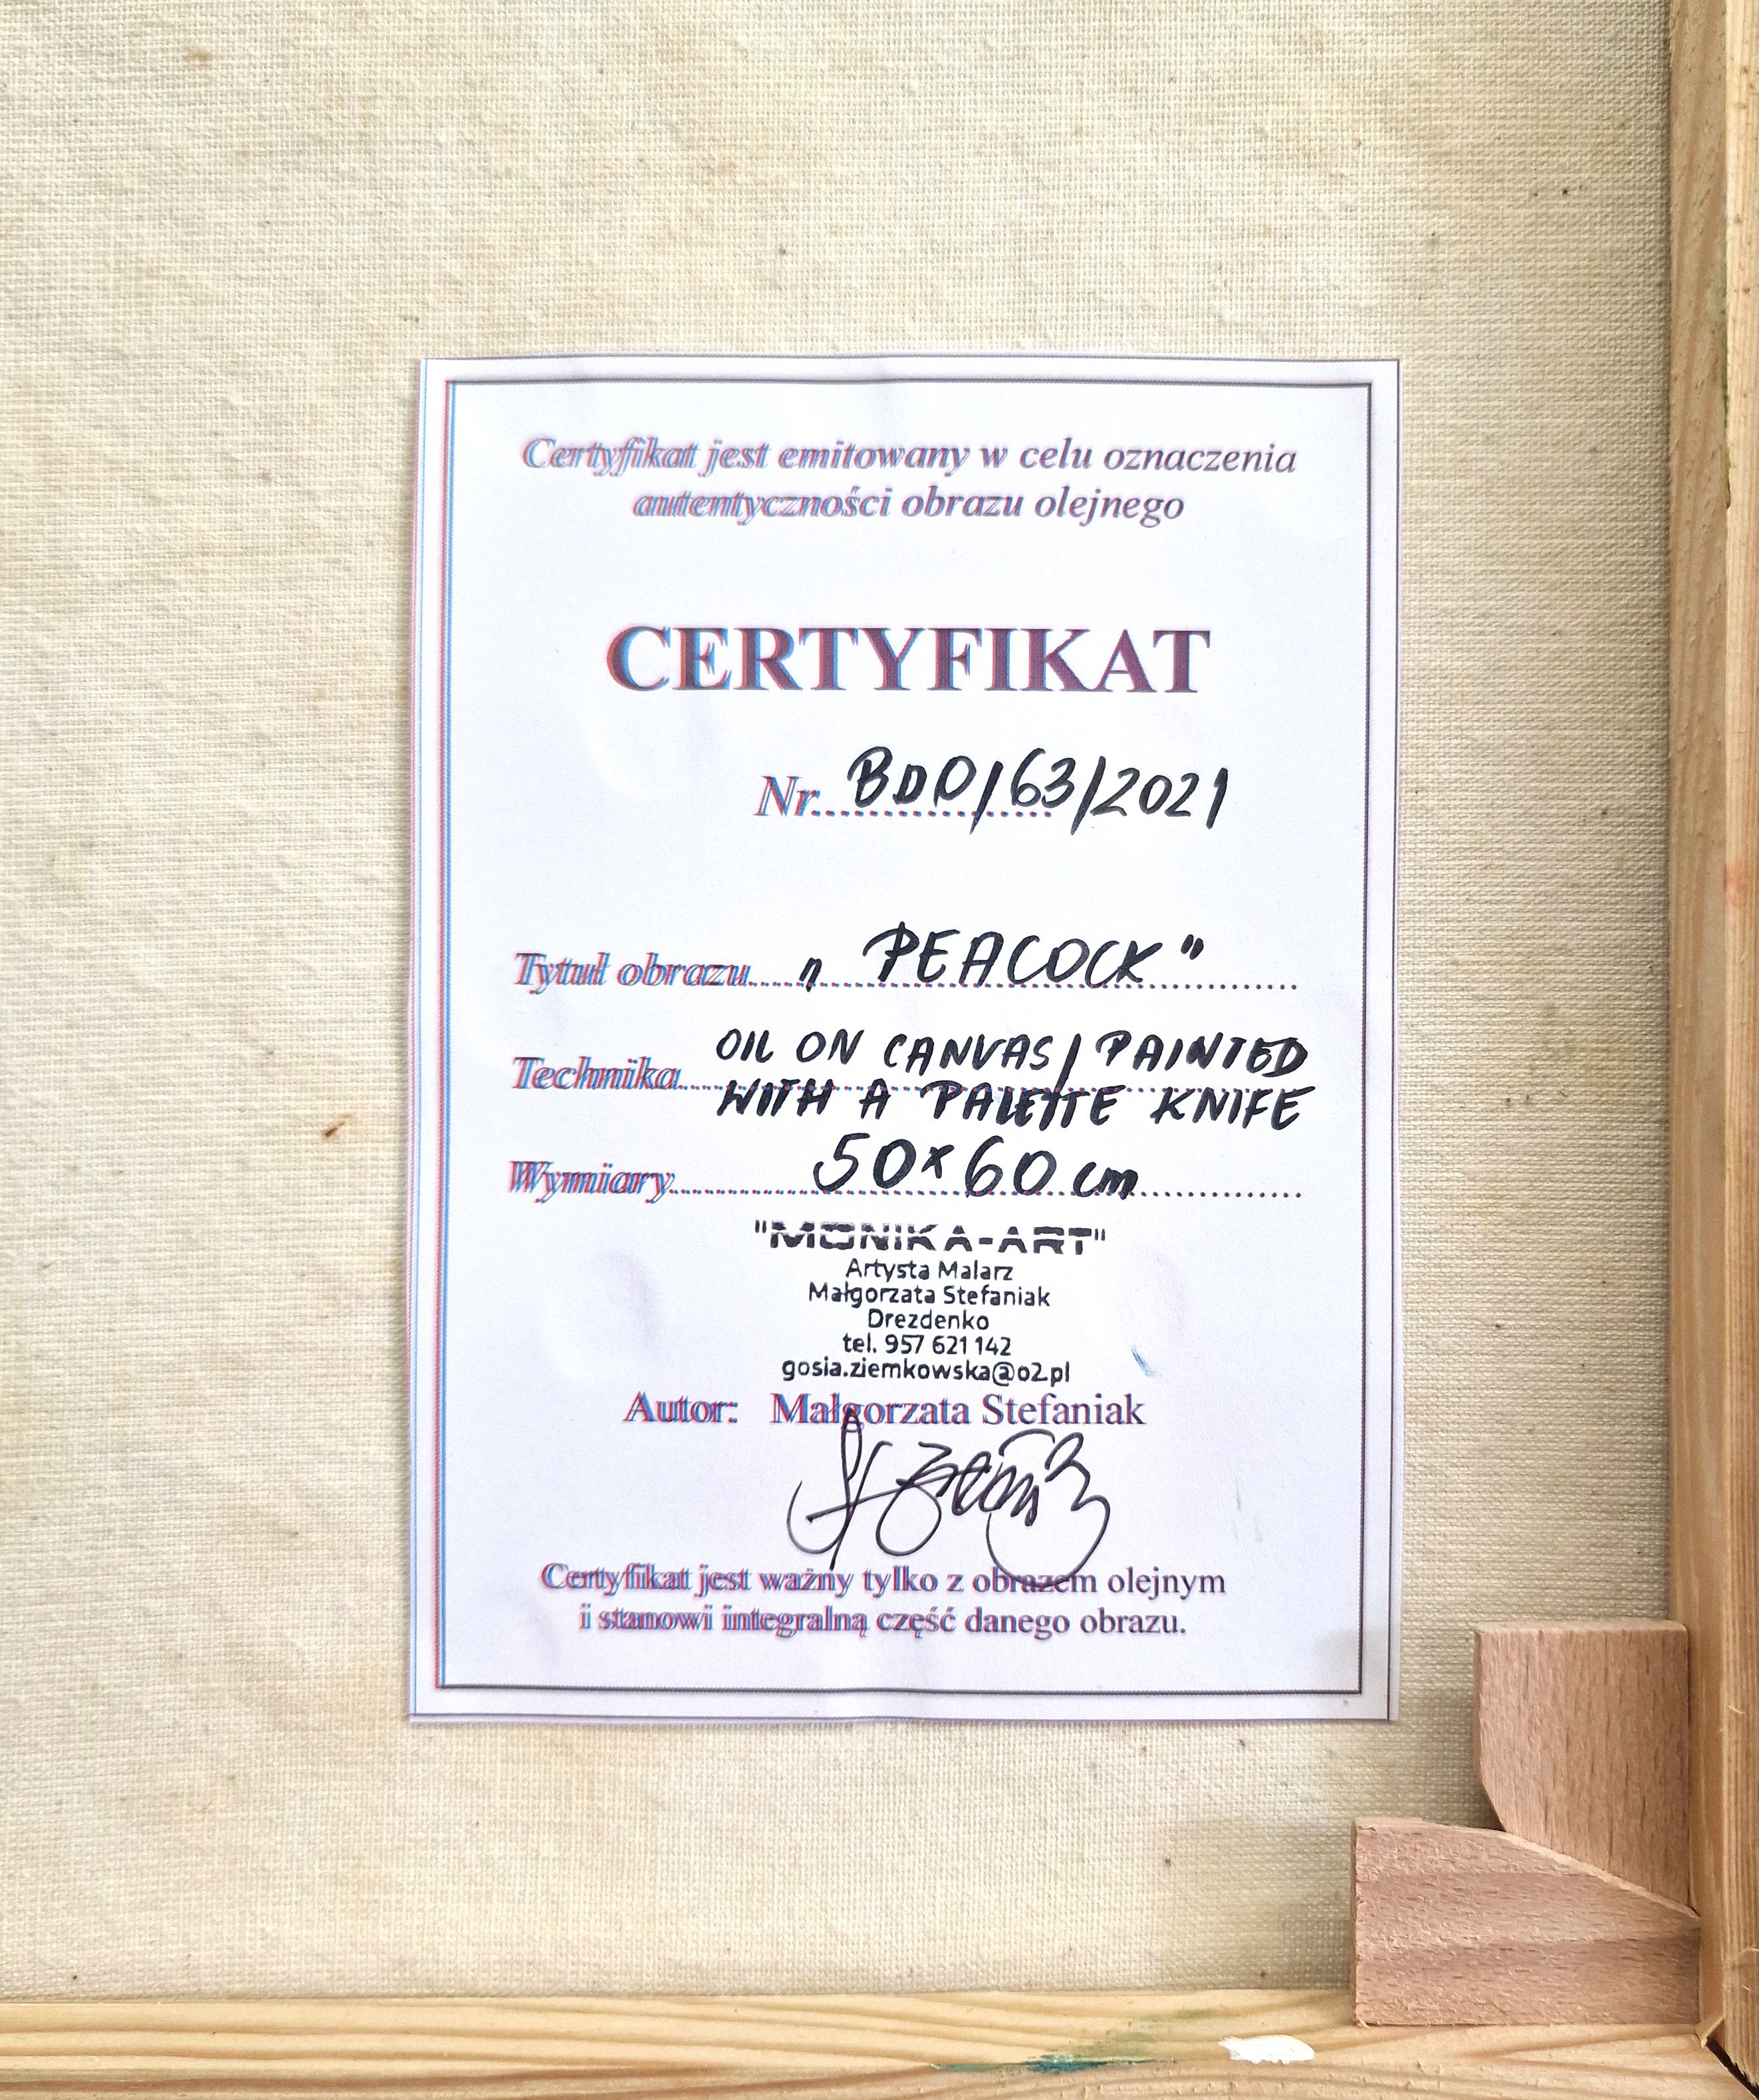 Certyfikat jest emitowany w celu oznaczenia
autentyczności obrazu olejnego
CERTYFIKAT
Nr. BDO/63/2021
Tytuł obrazu..... „ PEACOCK"
Technika... OIL ON CANVAS/PAINTED
WITH A PALETTE KNIFE
Wymiary... 50x60 cm
"MONIKA-ART"
Artysta Malarz
Małgorzata Stefaniak
Drezdenko
tel. 957 621 142
gosia.ziemkowska@o2.pl
Autor: Małgorzata Stefaniak
Certyfikat jest ważny tylko z obrazem olejnym
i stanowi integralną część danego obrazu.